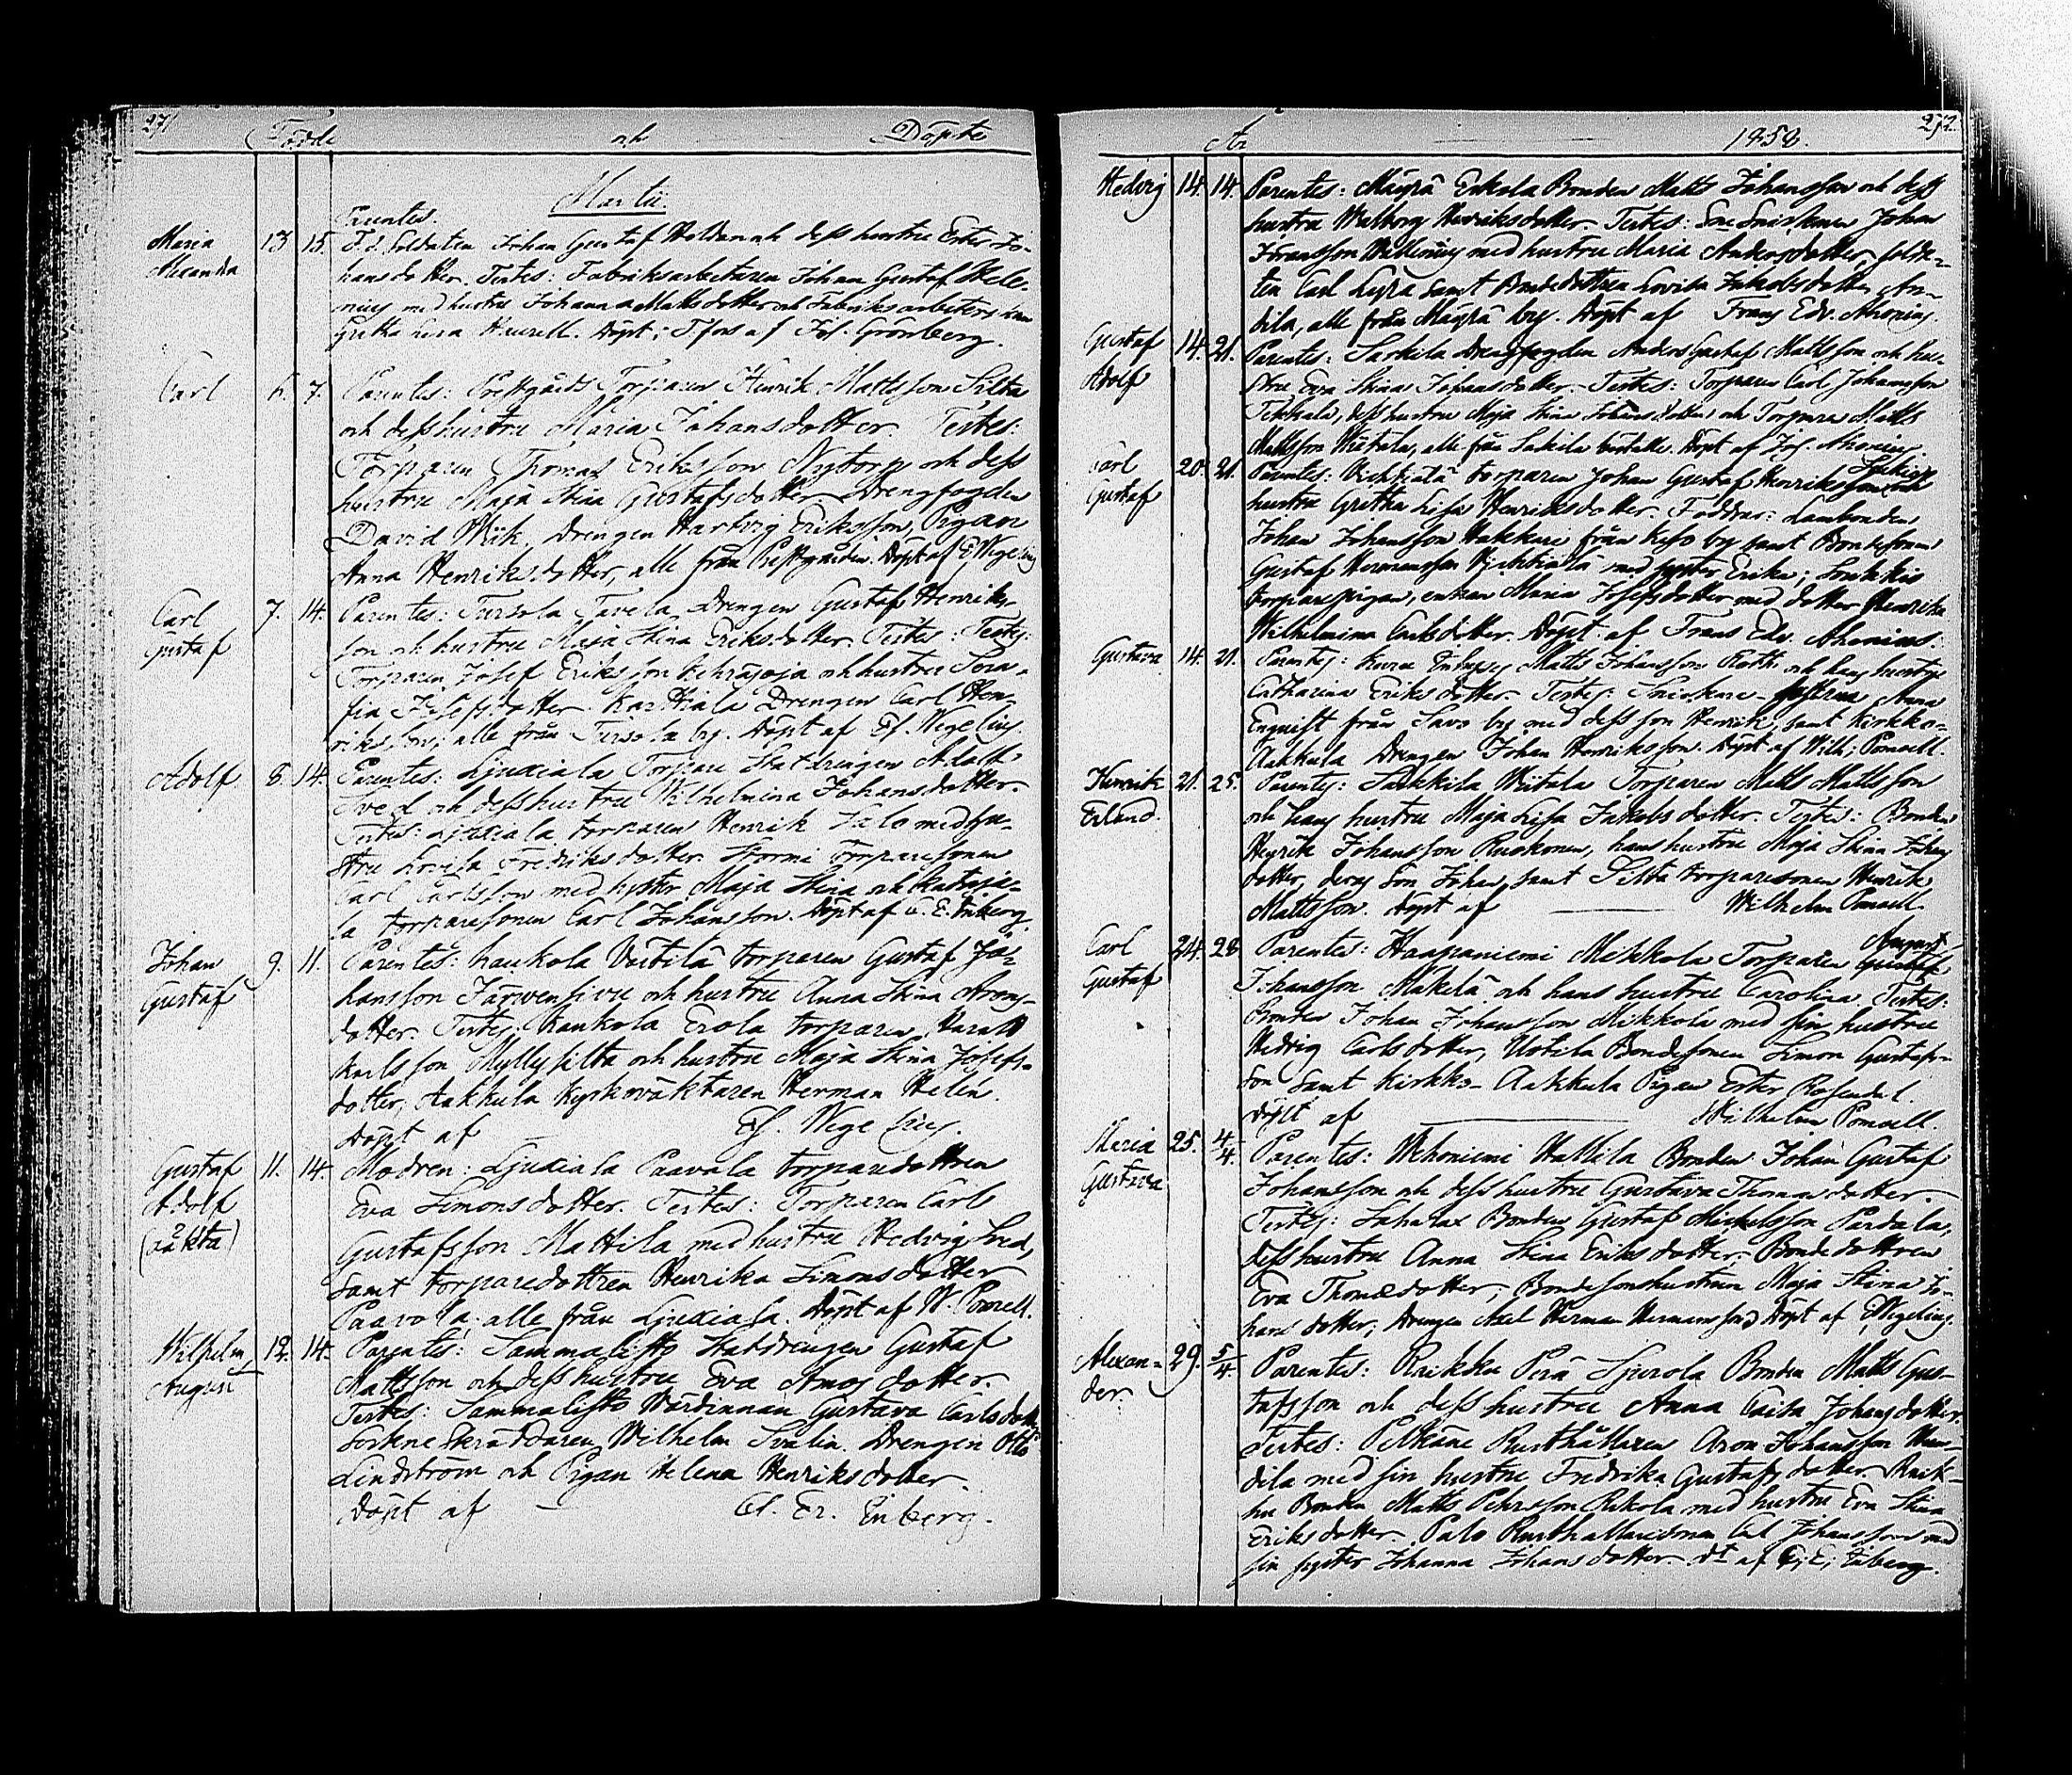 271
Födde och Döpte
Martii
Parentes.
Maria 13 15. F.d. Soldaten Johan Gustaf Holden och dess hustru Ester Jo-
Alexandra hansdotter. Testes: Fabriksarbetaren Johan Gustaf Hele-
nius med hustru Johanna Mattsdotter och Fabriksarbeters
Gretha Lisa Döpt i T:fors af Jos. Grönberg.
Carl 6. 7. Parentes: Prestgårds Torparen Henrik Mattsson Silta
och dess hustru Maria Johansdotter. Testes:
Torparen Thomas Eriksson Nytorp och dess
hustru Maja Stina Gustafsdotter Drengfogden
David Wiik, Drengen Hartvig Eriksson, Pigan
Anna Henriksdotter, alle från Prestgården. Döpt af E. Wegelius
Carl 7. 14. Parentes: Tursola Tavela Drengen Gustaf Henriks-
Gustaf son och hustru Maja Stina Eriksdotter. Testes: Testes:
Torparen Josef Eriksson och hustru So-
fia Josefsdotter Karttiala Drengen Carl Hen-
riksson, alle från Tursola by. Döpt af Ef. Wegelius.
Adolf 8. 14. Parentes: Ljuxiala Torpare Statdrengen Adolf
Sved och dess hustru Wilhelmina Johansdotter.
Testes: Ljuxiala torparen Henrik Jalo med hu-
stru Lovisa Fredriksdotter. Stormi Torparesonen
Carl Carlsson med syster Maja Stina och
la torparesonen Carl Johansson. Döpt af C. E. Enberg.
Johan 9. 11. Parentes: Kaukola Västilä torparen Gustaf Jo-
Gustaf hansson Järwensivu och hustru Anna Stina Arons-
dotter. Testes: Kaukola Erola torparen
Karlsson Myllysilta och hustru Maja Stina Josefs-
dotter, Aakkula Kyrkoväktaren Herman Helén.
Döpt af Ef. Wegelius.
Gustaf 11. 14. Modren: Ljuxiala Paavola torparedottren
Adolf Eva Simonsdotter. Testes: Torparen Carl
(oäkta) Gustafsson Mattila med hustru Hedvig Sved,
samt torparedottren Henrika Simonsdotter
Paavola alle från Ljuxiala. Döpt af W. Ponsell.
Wilhelm 12. 14. Parentes: Sammalisto Statdrengen Gustaf
August Mattsson och dess hustru Eva Amosdotter.
Testes: Sammalisto Värdinnan Gustava Carlsdotter
Sockneskräddaren Wilhelm Svalin. Drengen Otto
Lindström och Pigan Helena Henriksdotter.
Döpt af Cl. Er. Enberg.
År 1858. 272
Hedvig 14. 14. Parentes: Mäyrä Enkola Bonden Matts Johansson och dess
hustru Walborg Henriksdotter. Testes: Snickaren Johan
Göransson Wallenius med hustru Maria Andersdotter, solda-
ten Carl Leyra samt Bondedottren Lovisa Jakobsdotter An-
dila, alle från Mäyrä by. Döpt af Frans Edv. Ahonius.
Gustaf 14. 21. Parentes: Sarkila Drengfogden Anders Gustaf Mattsson och hu-
Adolf stru Eva Stina Johansdotter. Testes: Torparen Carl Johansson
dess hustru Maja Stina Johansdotter och Torparen Matts
Mattsson Wiitala, alle från by. Döpt af Jos. Ahonius.
Carl 20. 21. Parentes: torparen Johan Gustaf Henriksson och
Gustaf hustru Gretha Lisa Henriksdotter. Faddrar: Lambonden
Johan Johansson Hakkari från by samt Bondesonen
Gustaf Hermansson med syster Erika; Soukkio
torparepigan, enkan Maria Josefsdotter med dotter Henrika
Wilhelmina Carlsdotter. Döpt af Frans Edv. Ahonius.
Gustava 14. 21. Parentes: Matts Johansson och hans hustru
Catharina Eriksdotter. Testes: Anna
Enqvist från Savo by med dess son Henrik, samt Kirkko-
Aakkula Drengen Johan Henriksson. Döpt af Wilh: Ponsell.
Henrik 21. 25. Parentes: Sarkkila Wiitala Torparen Matts Mattsson
Erland. och hans hustru Maja Lisa Jakobsdotter. Testes: Bonden
Henrik Johansson Ruokonen, hans hustru Maja Stina Johans
dotter, deras Son Johan, samt Silta torparesonen Henrik
Mattsson. Döpt af Wilhelm Ponsell.
Carl 24. 28 Parentes: Haapaniemi Mikkola Torparen August
Gustaf Johansson Mäkelä och hans hustru Carolina. Testes:
Bonden Johan Johansson Mikkola med sin hustru
Hedvig Carlsdotter, Uotila Bondesonen Simon Gustafs-
son samt Kirkko-Aakkula Pigan Ester Rosendel.
Döpt af Wilhelm Ponsell.
Maria 25. 4/4. Parentes: Wehoniemi Hallila Bonden Johan Gustaf
Gustava Johansson och dess hustru Gustava Thomasdotter.
Testes: Sahalax Bonden Gustaf Michelsson Pardala,
dess hustru Anna Stina Eriksdotter. Bondedottren
Eva Thomædotter; Bondesonshustrun Maja Stina Jo-
hansdotter; Drengen Axel Herman Hermansson Döpt af E. Wegelius.
Alexan- 29. 5/4. Parentes: Raikku Perä Sipola Bonden Matts Gus-
der tafsson och dess hustru Anna Caisa Johansdotter.
Testes: Pelkäne Rusthållaren Aron Johansson
dila med sin hustru Fredrika Gustafsdotter. Raik-
ku Bonden Matts Pehrsson Rekola med hustru Eva Stina
Eriksdotter. Palo Rusthållaresonen Carl Johansson med
sin syster Johanna Johansdotter. dt af C; E; Enberg.